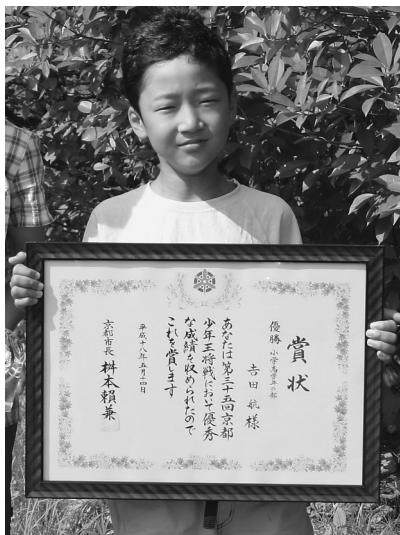 賞状
優勝 小学高学年の部
吉田 航 様
あなたは第三十五回京都
少年王将戦において優秀
な成績を収められたので
これを賞します
平成十八年五月十四日
京都市長 桝本賴兼